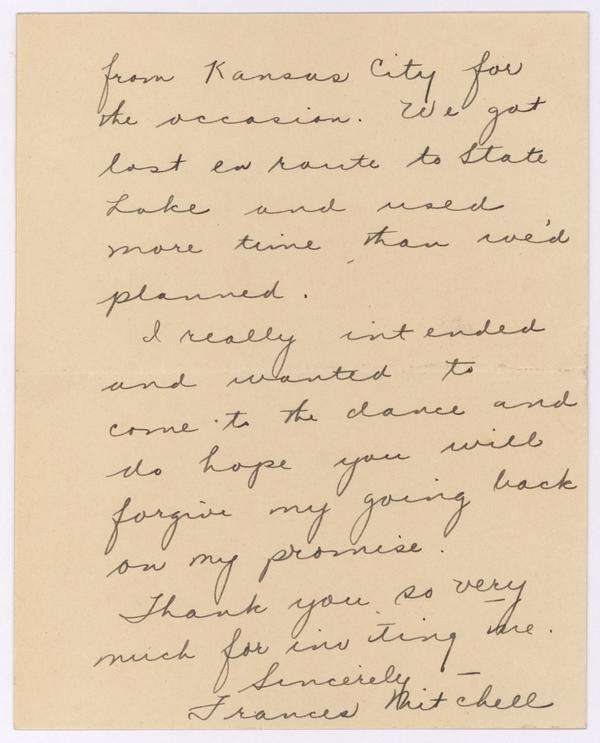 from Kansas City for
the occasion. We got
lost en route to State
Lake and used
more time than we'd
planned.
I really intended
and wanted to
come to the dance and
do hope you will
forgive my going back
on my promise.
Thank you so very
much for inviting me.
Sincerely
Frances Mitchell